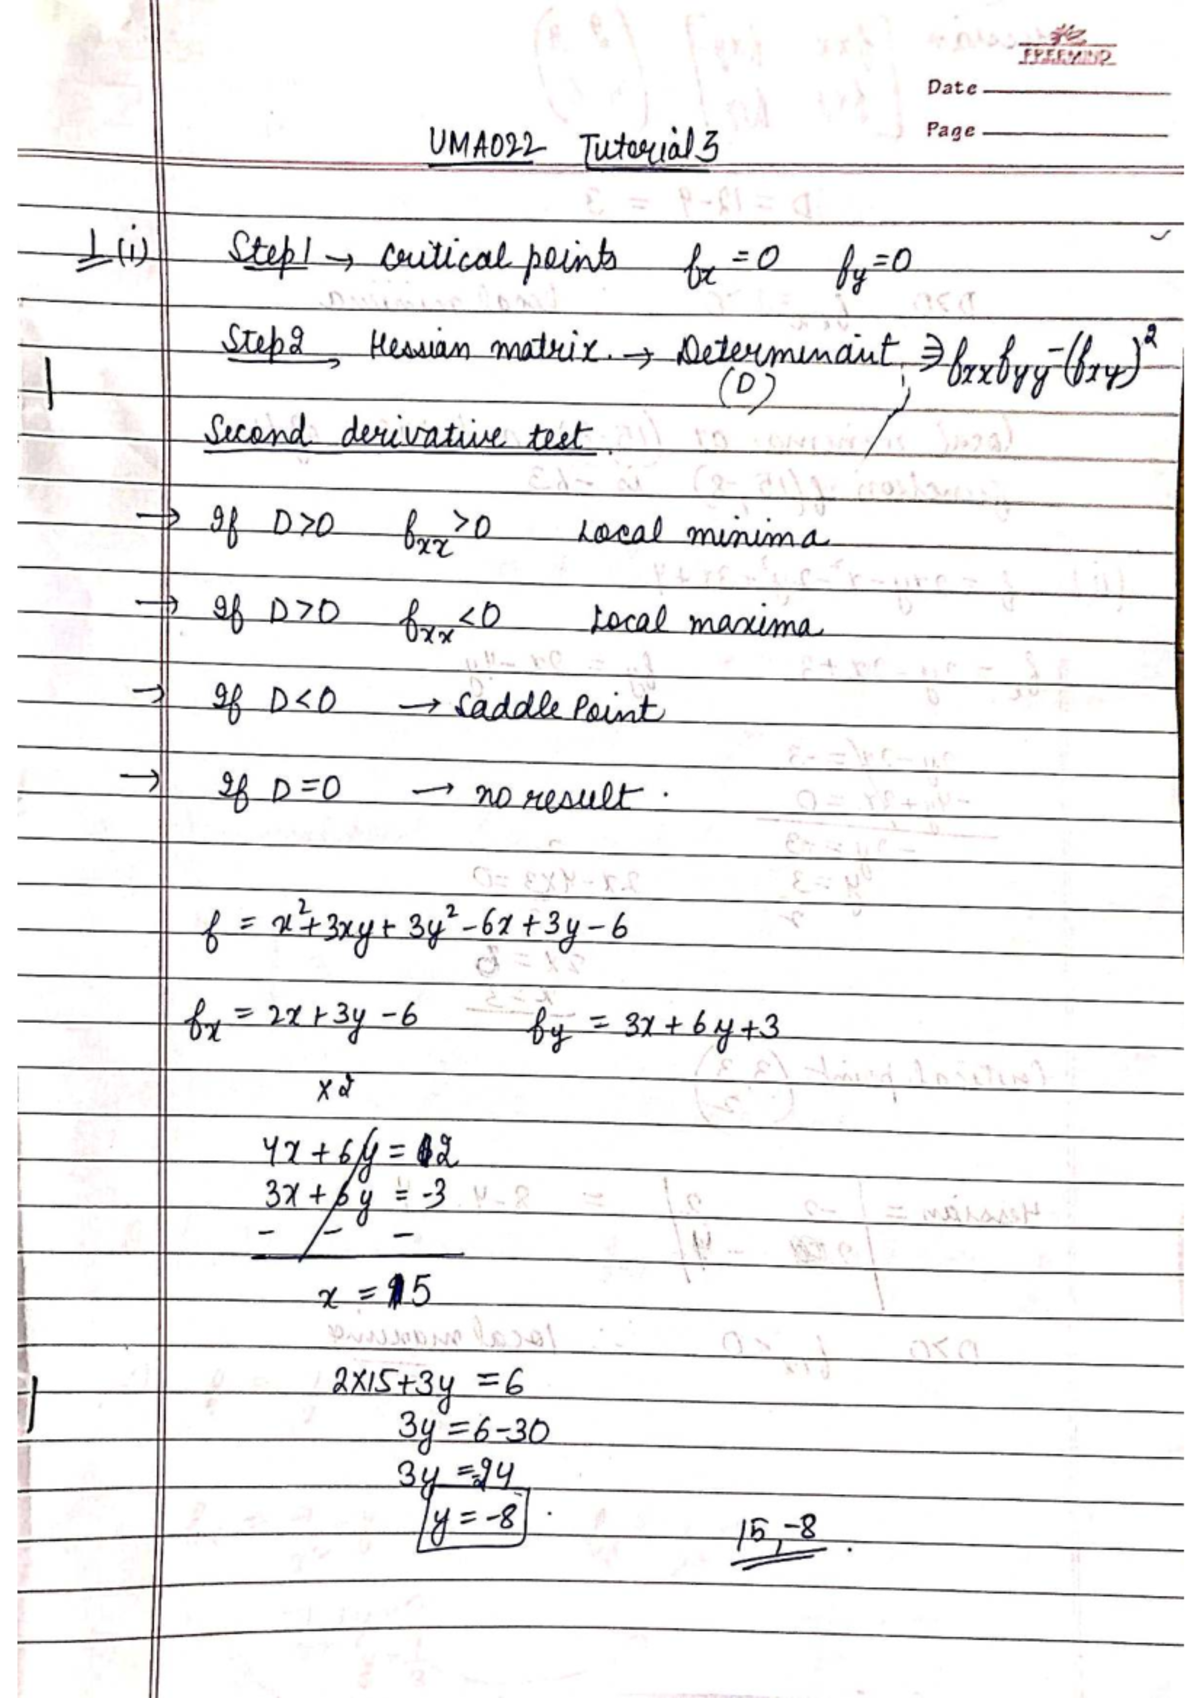 FREEMIND
Date
Page
UMA022 Tutorial 3
1 (i) Step1 → critical points fx = 0 fy = 0
Step2, Hessian matrix. → Determinant ⇒ fxx fyy - (fxy)²
(D)
Second derivative test.
→ If D>0 fxx >0 Local minima
→ If D>0 fxx <0 Local maxima
→ If D<0 → Saddle Point
→ If D=0 → no result.
f = x² + 3xy + 3y² - 6x + 3y - 6
fx = 2x + 3y - 6 fy = 3x + 6y + 3
x2
4x + 6y = 12
3x + 6y = -3
- - -
x = 15
2×15+3y = 6
3y = 6-30
3y = -24
y = -8 .
15, -8 .